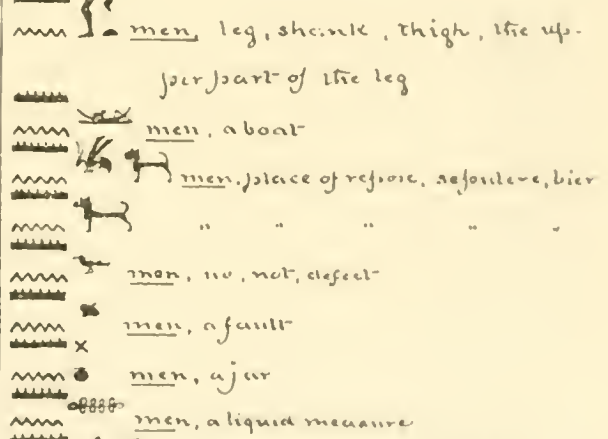 men, leg, shank, thigh, the up-
per part of the leg
men, a boat
men, place of repose, sepulcre, bier
" " " " "
men, no, not, defect
men, a fault
men, a jar
men, a liquid measure